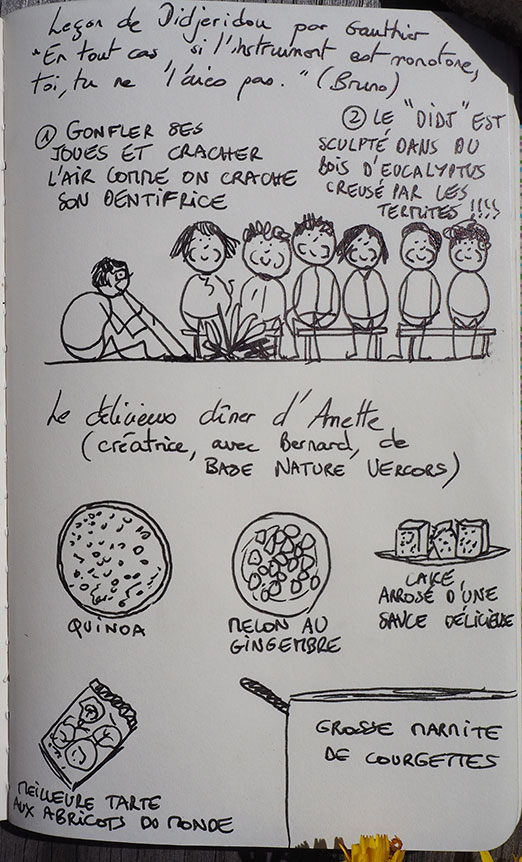 Leçon de Didjeridou par Gauthier
"En tout cas, si l'instrument est monotone,
toi, tu ne l'es pas." (Bruno)
① GONFLER SES
JOUES ET CRACHER
L'AIR COMME ON CRACHE
SON DENTIFRICE
② LE "DIDJ" EST
SCULPTÉ DANS DU
BOIS D'EUCALYPTUS
CREUSÉ PAR LES
TERMITES !!!!
Le délicieux dîner d'Anette
(créatrice, avec Bernard, de
BASE NATURE VERCORS)
QUINOA
MELON AU
GINGEMBRE
CAKE,
ARROSÉ D'UNE
SAUCE DÉLICIEUSE
MEILLEURE TARTE
AUX ABRICOTS DU MONDE
GROSSE MARMITE
DE COURGETTES